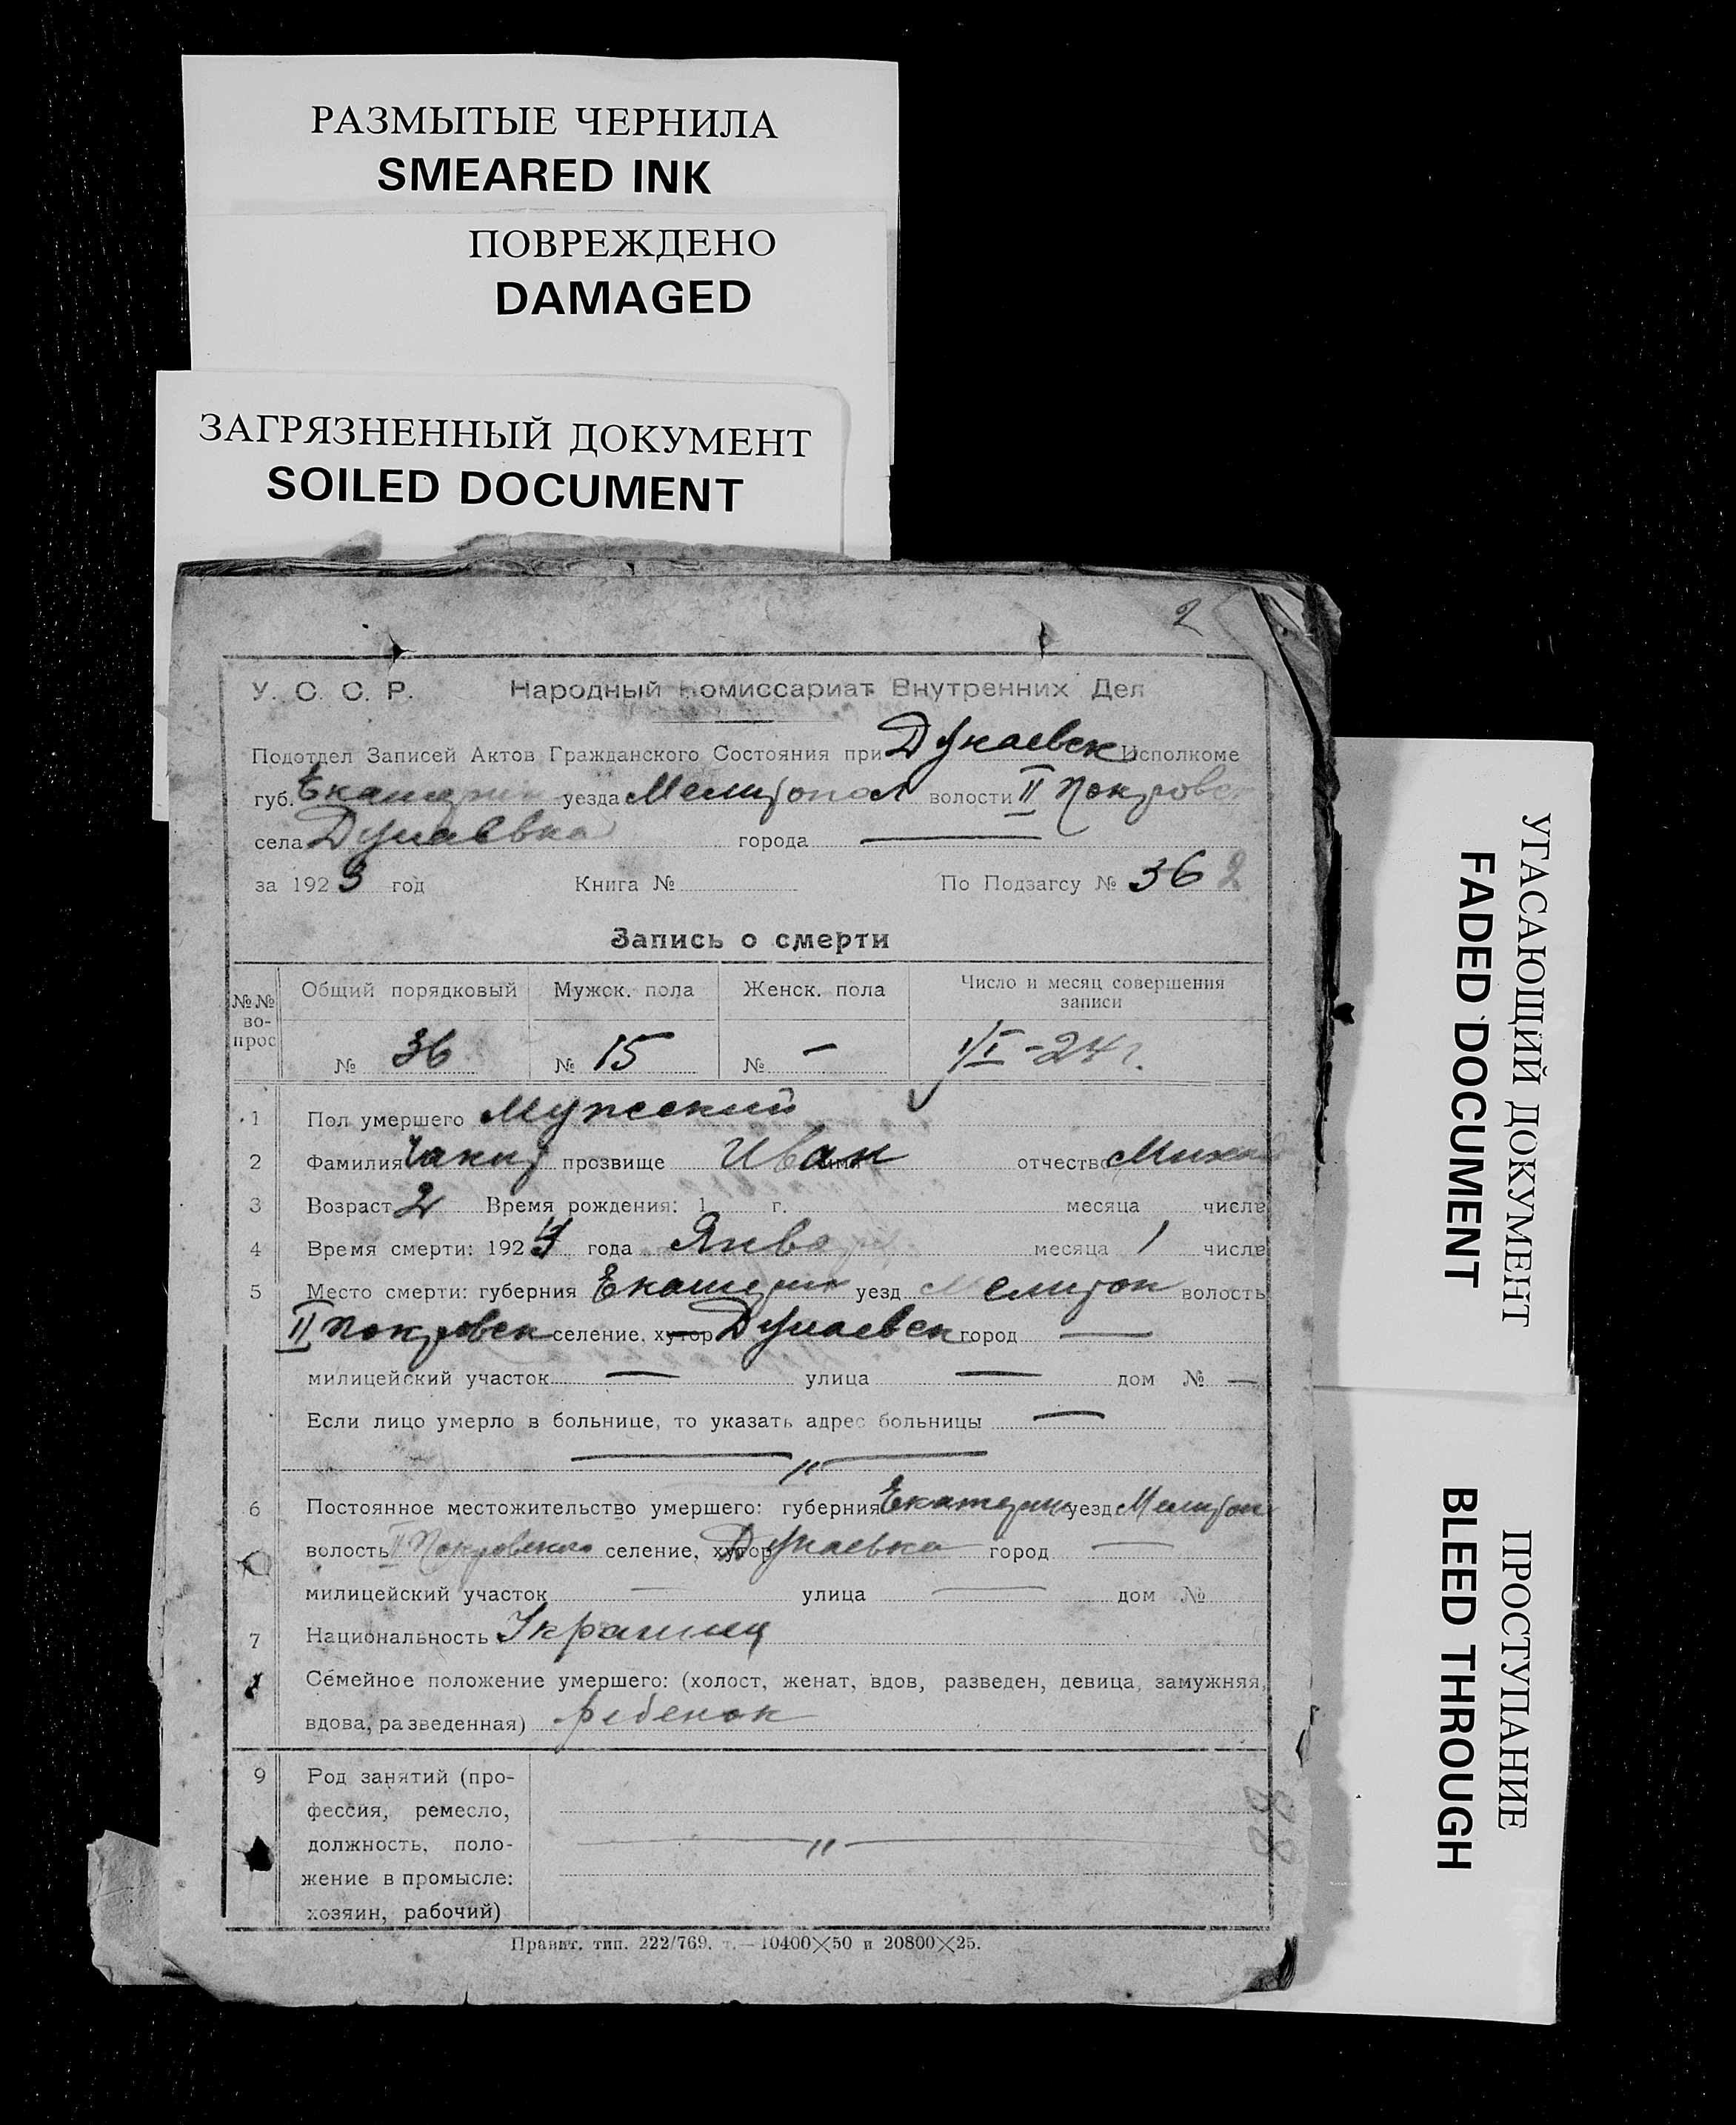 РАЗМЫТЫЕ ЧЕРНИЛА
SMEARED INK
ПОВРЕЖДЕНО
DAMAGED
ЗАГРЯЗНЕННЫЙ ДОКУМЕНТ
SOILED DOCUMENT
2
У. С. С. Р. Народный Комиссариат Внутренних Дел
Подотдел Записей Актов Гражданского Состояния при Дунаевск Исполкоме
губ. Екатерин уезда Мелитопол волости II Покровск
села Дунаевка города —
за 1923 год Книга № По Подзагсу № 36 2
Запись о смерти
№№ во-прос Общий порядковый Мужск. пола Женск. пола Число и месяц совершения записи
№ 36 № 15 № — 1/I -24 г.
1 Пол умершего Мужский
2 Фамилия прозвище Иван имя отчество Михаил
3 Возраст 2 Время рождения: 1 г. месяца числа
4 Время смерти: 1924 года Января месяца 1 числа
5 Место смерти: губерния Екатерин уезд Мелитоп волость
II Покровск селение, хутор Дунаевск город —
милицейский участок — улица — дом № —
Если лицо умерло в больнице, то указать адрес больницы —
— „ —
6 Постоянное местожительство умершего: губерния Екатерин уезд Мелитоп
волость II Покровского селение, хутор Дунаевка город —
милицейский участок — улица — дом №
7 Национальность Украинец
Семейное положение умершего: (холост, женат, вдов, разведен, девица, замужняя,
вдова, разведенная) ребенок
9 Род занятий (про-
фессия, ремесло,
должность, поло- — „ —
жение в промысле:
хозяин, рабочий)
88
Правит. тип. 222/769. т.—10400×50 и 20800×25.
УГАСАЮЩИЙ ДОКУМЕНТ
FADED DOCUMENT
ПРОСТУПАНИЕ
BLEED THROUGH